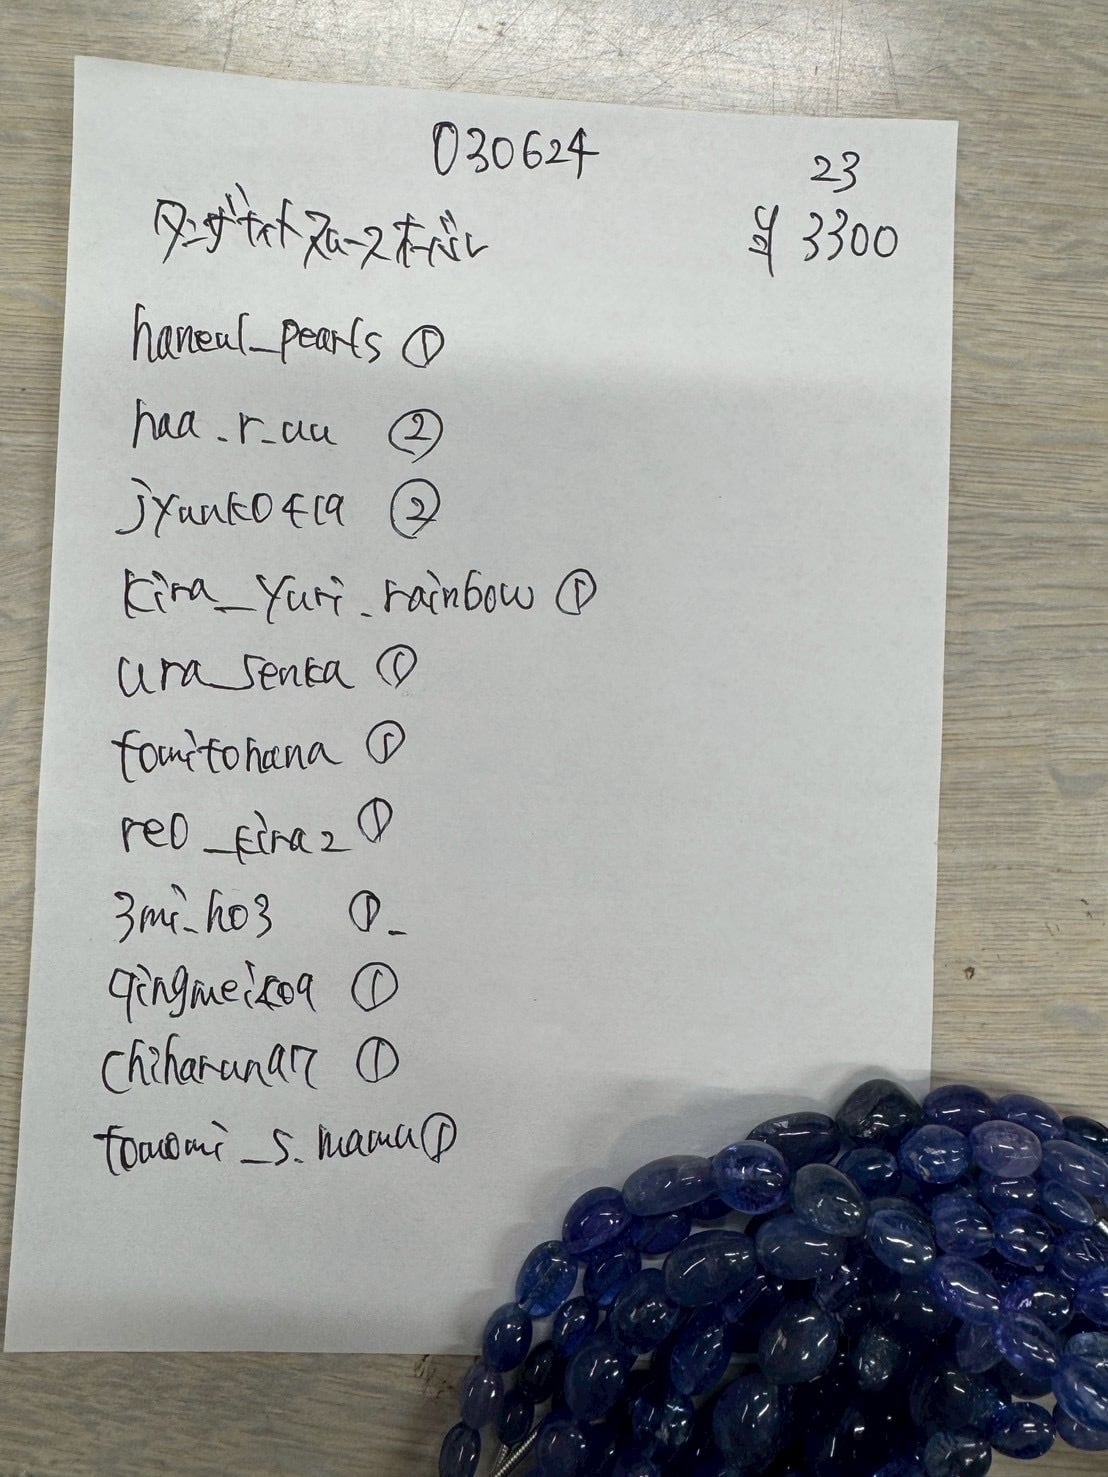 030624
23
タンザナイトスムースオーバル
¥3300
haneul_pearls ①
haa_r_uu ②
jyunko419 ②
kira_yuri_rainbow ①
ura_senka ①
tomitohana ①
reo_kira2 ①
3mi_ho3 ①
qingmeiko9 ①
chiharuna17 ①
tomomi_s.mama ①